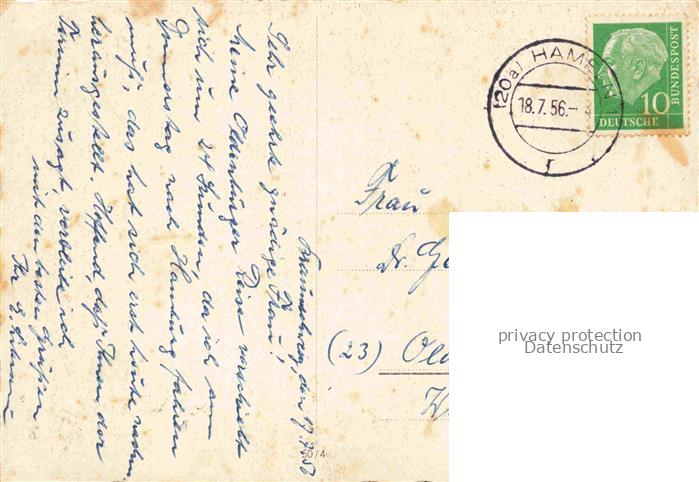 Braunschweig, den 17.7.56
Sehr geehrte gnädige Frau!
Meine Oldenburger Reise verschiebt
sich um 24 Stunden, da ich am
Donnerstag nach Hamburg fahren
muß, das hat sich erst heute
herausgestellt. Hoffend, daß Ihnen der
Termin zusagt, verbleibe ich
mit den besten Grüßen
Ihr
(20a) HAMELN
18.7.56.-
f
10
DEUTSCHE
BUNDESPOST
Frau
Dr.
(23)
privacy protection
Datenschutz
50/4